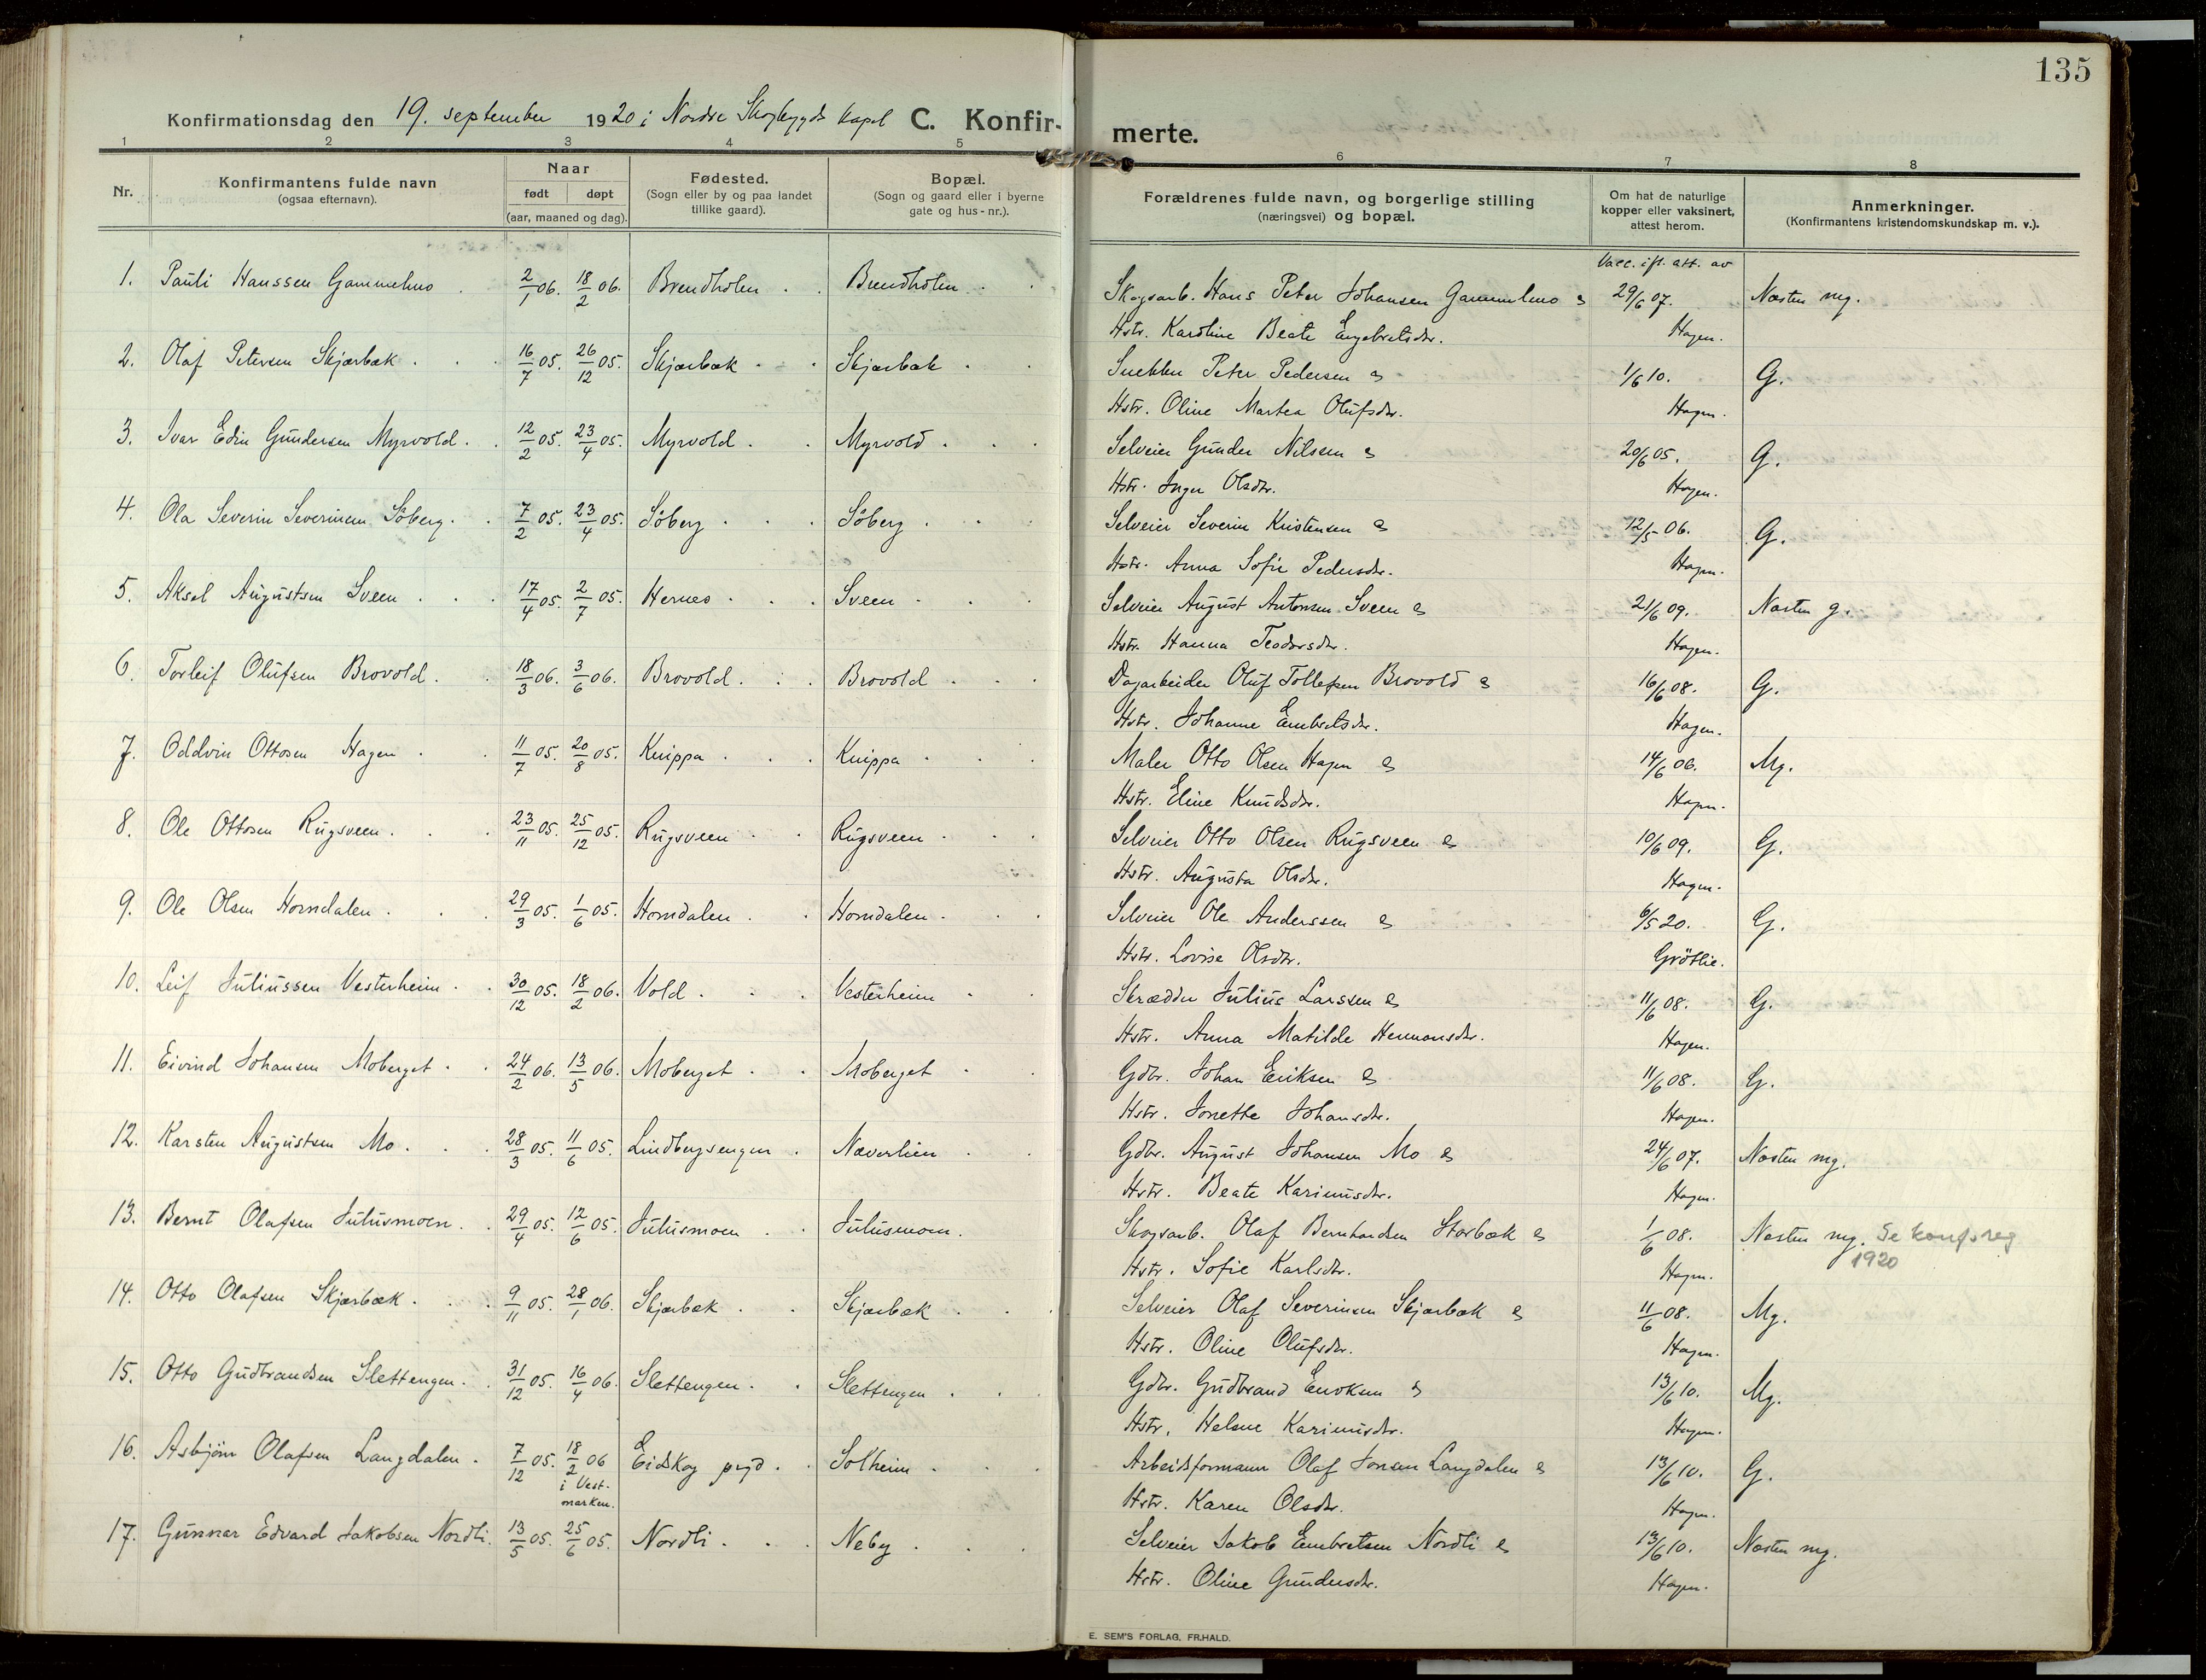 135
Konfirmationsdag den 19. september 1920 i Nordre Skogbygds kapel C. Konfir-
merte.
1 2 3 4 5 6 7 8
Nr. Konfirmantens fulde navn (ogsaa efternavn). Naar født døpt (aar, maaned og dag). Fødested. (Sogn eller by og paa landet tillike gaard). Bopæl. (Sogn og gaard eller i byerne gate og hus-nr.). Forældrenes fulde navn, og borgerlige stilling (næringsvei) og bopæl. Om hat de naturlige kopper eller vaksinert, attest herom. Anmerkninger. (Konfirmantens kristendomskundskap m. v.).
Vacc. ifl. att. av
1. Pauli Hanssen Gammelmo 2/1 06. 18/2 06. Brendholen Brendholen Skogsarb. Hans Peter Johansen Gammelmo & 29/6 07. Næsten mg.
Hstr. Karoline Beate Engebretsdtr. Hagen.
2. Olaf Petersen Skjærbæk 16/7 05. 26/12 05. Skjærbæk Skjærbæk Snekker Peter Pedersen & 1/6 10. G.
Hstr. Oline Martea Olufsdtr. Hagen.
3. Ivar Edin Gundersen Myrvold 12/2 05. 23/4 05. Myrvold Myrvold Selveier Gunder Nilsen & 20/6 05. G.
Hstr. Inger Olsdtr. Hagen.
4. Ola Severin Severinsen Söberg 7/2 05. 23/4 05. Söberg Söberg Selveier Severin Kristensen & 12/5 06. G.
Hstr. Anna Sofie Pedersdtr. Hagen.
5. Aksel Augustsen Sveen 17/4 05. 2/7 05. Hernes Sveen Selveier August Antonsen Sveen & 21/6 09. Næsten g.
Hstr. Hanna Teodorsdtr. Hagen.
6. Torleif Olufsen Brovold 18/3 06. 3/6 06. Brovold Brovold Dagarbeider Oluf Tollefsen Brovold & 16/6 08. G.
Hstr. Johanne Embretsdtr. Hagen.
7. Oddvin Ottosen Hagen 11/7 05. 20/8 05. Knippa Knippa Maler Otto Olsen Hagen & 14/6 06. Mg.
Hstr. Eline Knudsdtr. Hagen.
8. Ole Ottosen Rugsveen 23/11 05. 25/12 05. Rugsveen Rugsveen Selveier Otto Olsen Rugsveen & 10/6 09. G.
Hstr. Augusta Olsdtr. Hagen.
9. Ole Olsen Horndalen 29/3 05. 1/6 05. Horndalen Horndalen Selveier Ole Anderssen & 6/5 20. G.
Hstr. Lovise Olsdtr. Grötlie.
10. Leif Juliussen Vesterheim 30/12 05. 18/2 06. Vold Vesterheim Skrædder Julius Larssen & 11/6 08. G.
Hstr. Anna Matilde Hermansdtr. Hagen.
11. Eivind Johansen Moberget 24/2 06. 13/5 06. Moberget Moberget Gdbr. Johan Eriksen & 11/6 08. G.
Hstr. Jonette Johansdtr. Hagen.
12. Karsten Augustsen Mo 28/3 05. 11/6 05. Lindbergsengen Næverlien Gdbr. August Johansen Mo & 24/6 07. Næsten mg.
Hstr. Beate Karinusdtr. Hagen.
13. Bernt Olafsen Julusmoen 29/4 05. 12/6 05. Julusmoen Julusmoen. Skogsarb. Olaf Bernhardsen Storbæk & 1/6 08. Næsten mg. Se konfsreg 1920
Hstr. Sofie Karlsdtr. Hagen.
14. Otto Olafsen Skjærbæk 9/11 05. 28/1 06. Skjærbæk Skjærbæk Selveier Olaf Severinsen Skjærbæk & 11/6 08. Mg.
Hstr. Oline Olufsdtr. Hagen.
15. Otto Gudbrandsen Slettengen 31/12 05. 16/4 06. Slettengen Slettengen Gdbr. Gudbrand Enoksen & 13/6 10. Mg.
Hstr. Helene Karinusdtr. Hagen.
16. Asbjörn Olafsen Langdalen 7/12 05. 18/2 06 i Vestmarken. Eidskog prgd. Solheim Arbeidsformann Olaf Jonsen Langdalen & 13/6 10. G.
Hstr. Karen Olsdtr. Hagen.
17. Gunnar Edvard Jakobsen Nordli. 13/5 05. 25/6 05. Nordli Neby Selveier Jakob Embretsen Nordli & 13/6 10. Næsten mg.
Hstr. Oline Gundersdtr. Hagen.
E. SEM'S FORLAG, FR.HALD.